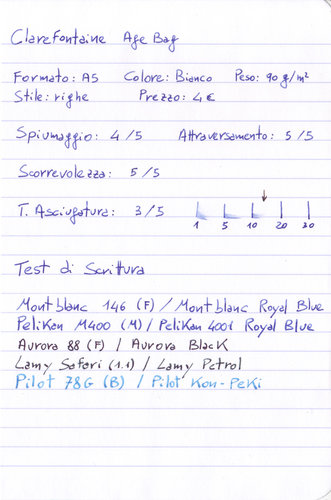 Clarefontaine Age Bag
Formato: A5 Colore: Bianco Peso: 90 g/m²
Stile: righe Prezzo: 4 €
Spiumaggio: 4/5 Attraversamento: 5/5
Scorrevolezza: 5/5
T. Asciugatura: 3/5
1 5 10 20 30
Test di Scrittura
Montblanc 146 (F) / Montblanc Royal Blue
Pelikan M400 (M) / Pelikan 4001 Royal Blue
Aurora 88 (F) / Aurora Black
Lamy Safari (1.1) / Lamy Petrol
Pilot 78G (B) / Pilot Kon-Peki